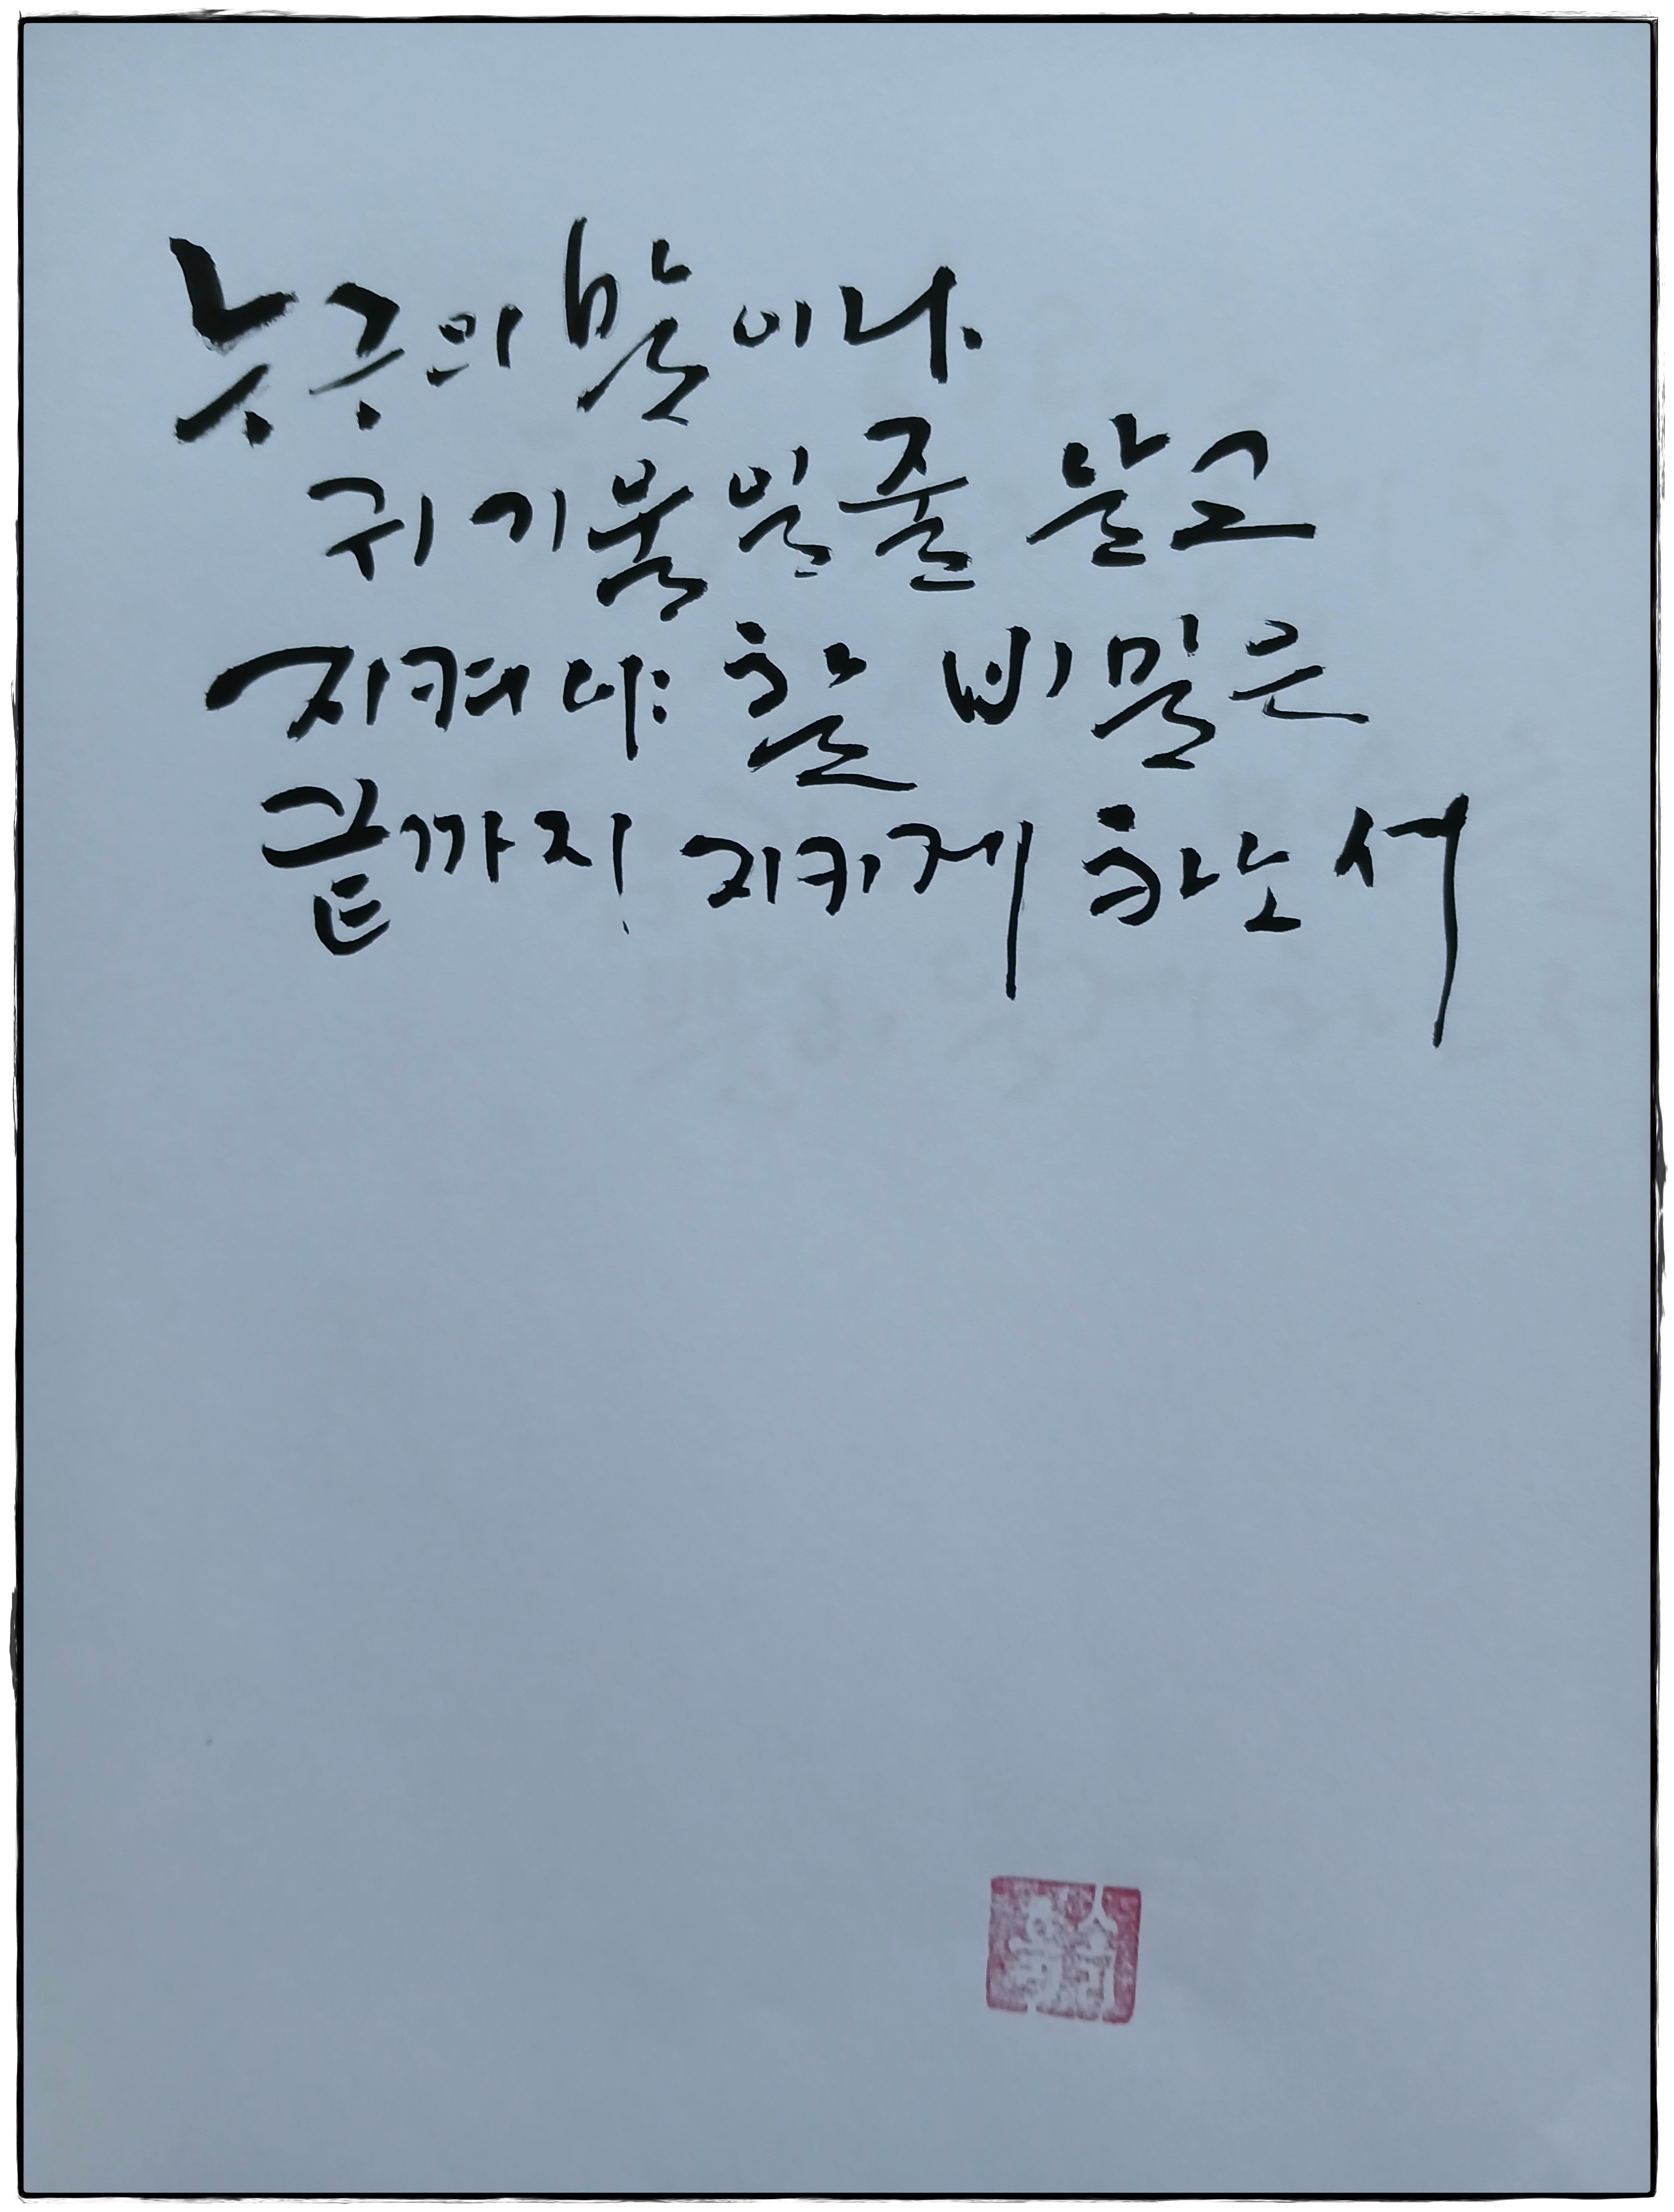 누구의 말이나
귀기울일줄 알고
지켜야 할 비밀은
끝까지 지키게 하소서